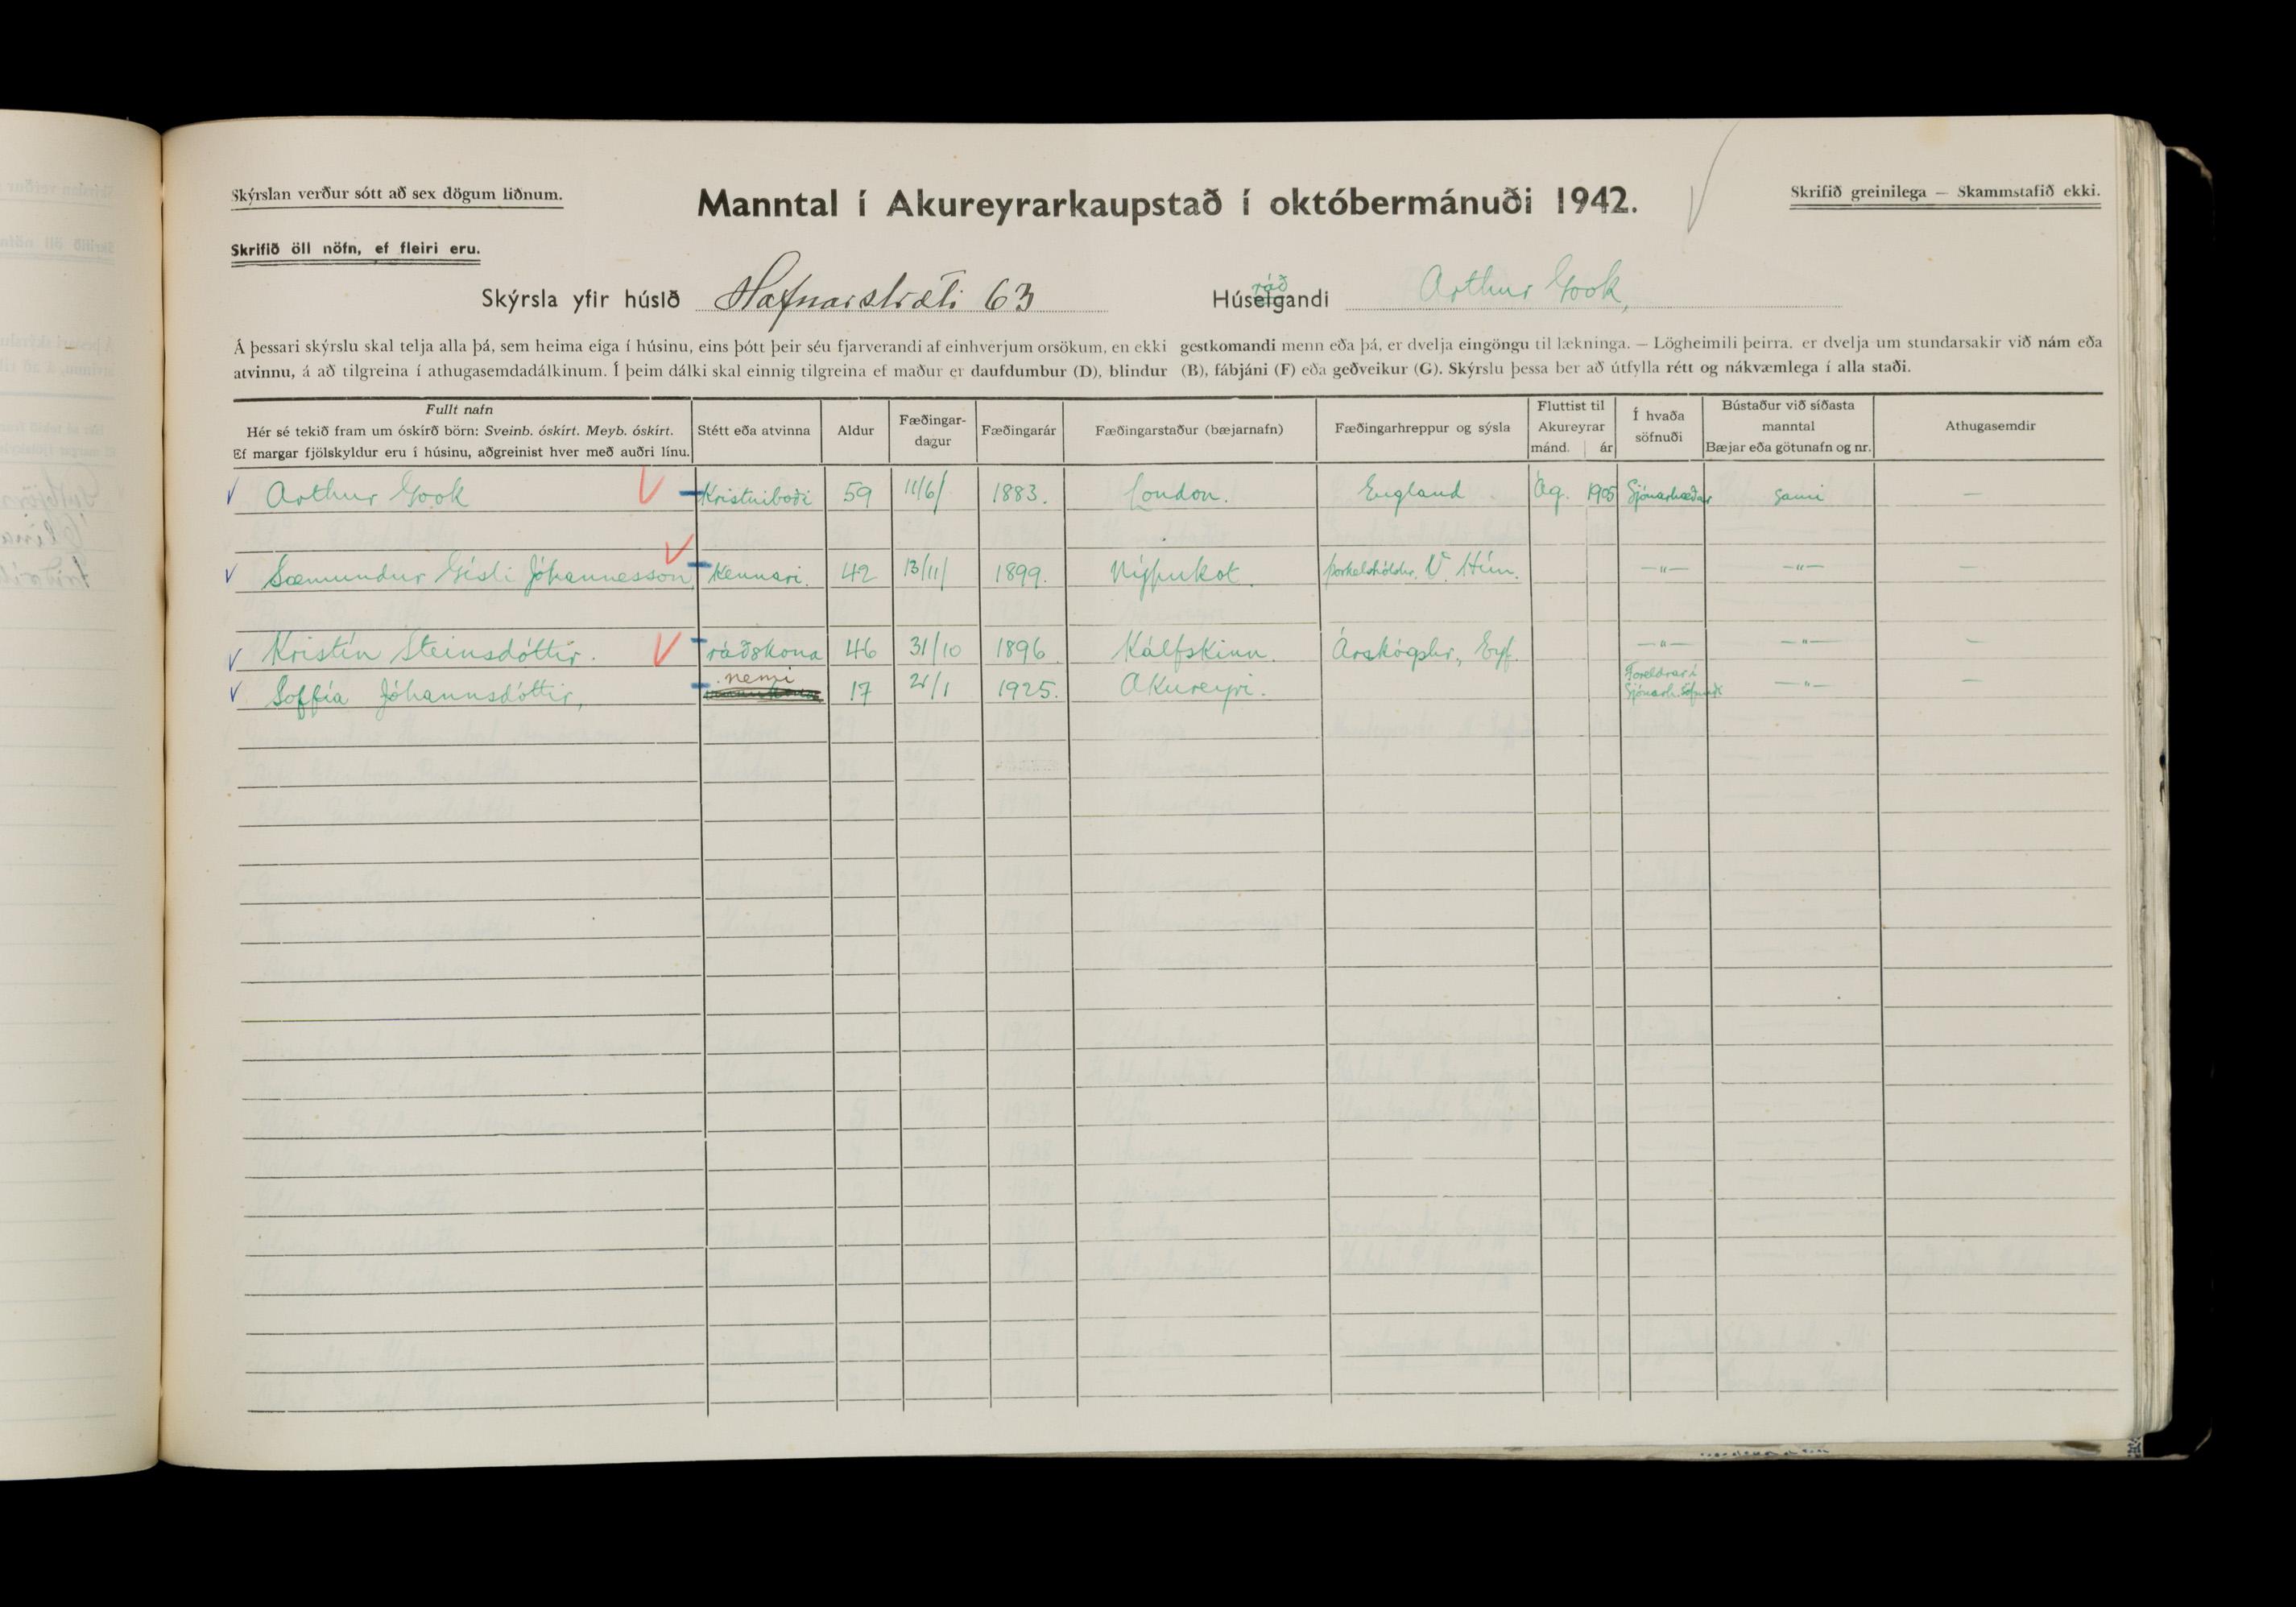 Skýrslan verður sótt að sex dögum liðnum.
Manntal í Akureyrarkaupstað í októbermánuði 1942.
Skrifið greinilega — Skammstafið ekki.
Skrifið öll nöfn, ef fleiri eru.
Skýrsla yfir húsið Hafnarstræti 63 Húseigandi ráð Arthur Gook,
Á þessari skýrslu skal telja alla þá, sem heima eiga í húsinu, eins þótt þeir séu fjarverandi af einhverjum orsökum, en ekki gestkomandi menn eða þá, er dvelja eingöngu til lækninga. — Lögheimili þeirra. er dvelja um stundarsakir við nám eða
atvinnu, á að tilgreina í athugasemdadálkinum. Í þeim dálki skal einnig tilgreina ef maður er daufdumbur (D), blindur (B), fábjáni (F) eða geðveikur (G). Skýrslu þessa ber að útfylla rétt og nákvæmlega í alla staði.
Fullt nafn
Hér sé tekið fram um óskírð börn: Sveinb. óskírt. Meyb. óskírt.
Ef margar fjölskyldur eru í húsinu, aðgreinist hver með auðri línu.
Stétt eða atvinna
Aldur
Fæðingar-
dagur
Fæðingarár
Fæðingarstaður (bæjarnafn)
Fæðingarhreppur og sýsla
Fluttist til
Akureyrar
mánd. ár
Í hvaða
söfnuði
Bústaður við síðasta
manntal
Bæjar eða götunafn og nr.
Athugasemdir
Arthur Gook Kristniboði 59 11/6/ 1883. London. England Ág. 1905 Sjónarhæðar sami —
Sæmundur Gísli Jóhannesson Kennari. 42 13/11/ 1899. Nýpukot. Þorkelshólshr. V. Hún. —"— —"— —
Kristín Steinsdóttir. ráðskona 46 31/10 1896 Kálfskinn. Árskógshr., Eyf. —"— —"— —
Soffía Jóhannsdóttir, nemi 17 21/1 1925. Akureyri. Foreldrar í —"— —
Sjónarh.söfnuði